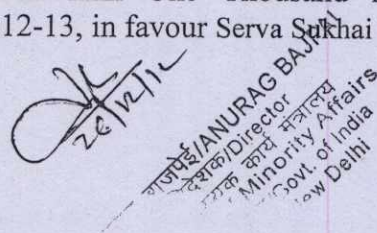 12-13, in favour Serva Sukhai
26/12/12
ANURAG BAJPAI
/Director
कार्य मंत्रालय
Minority Affairs
Govt. of India
New Delhi